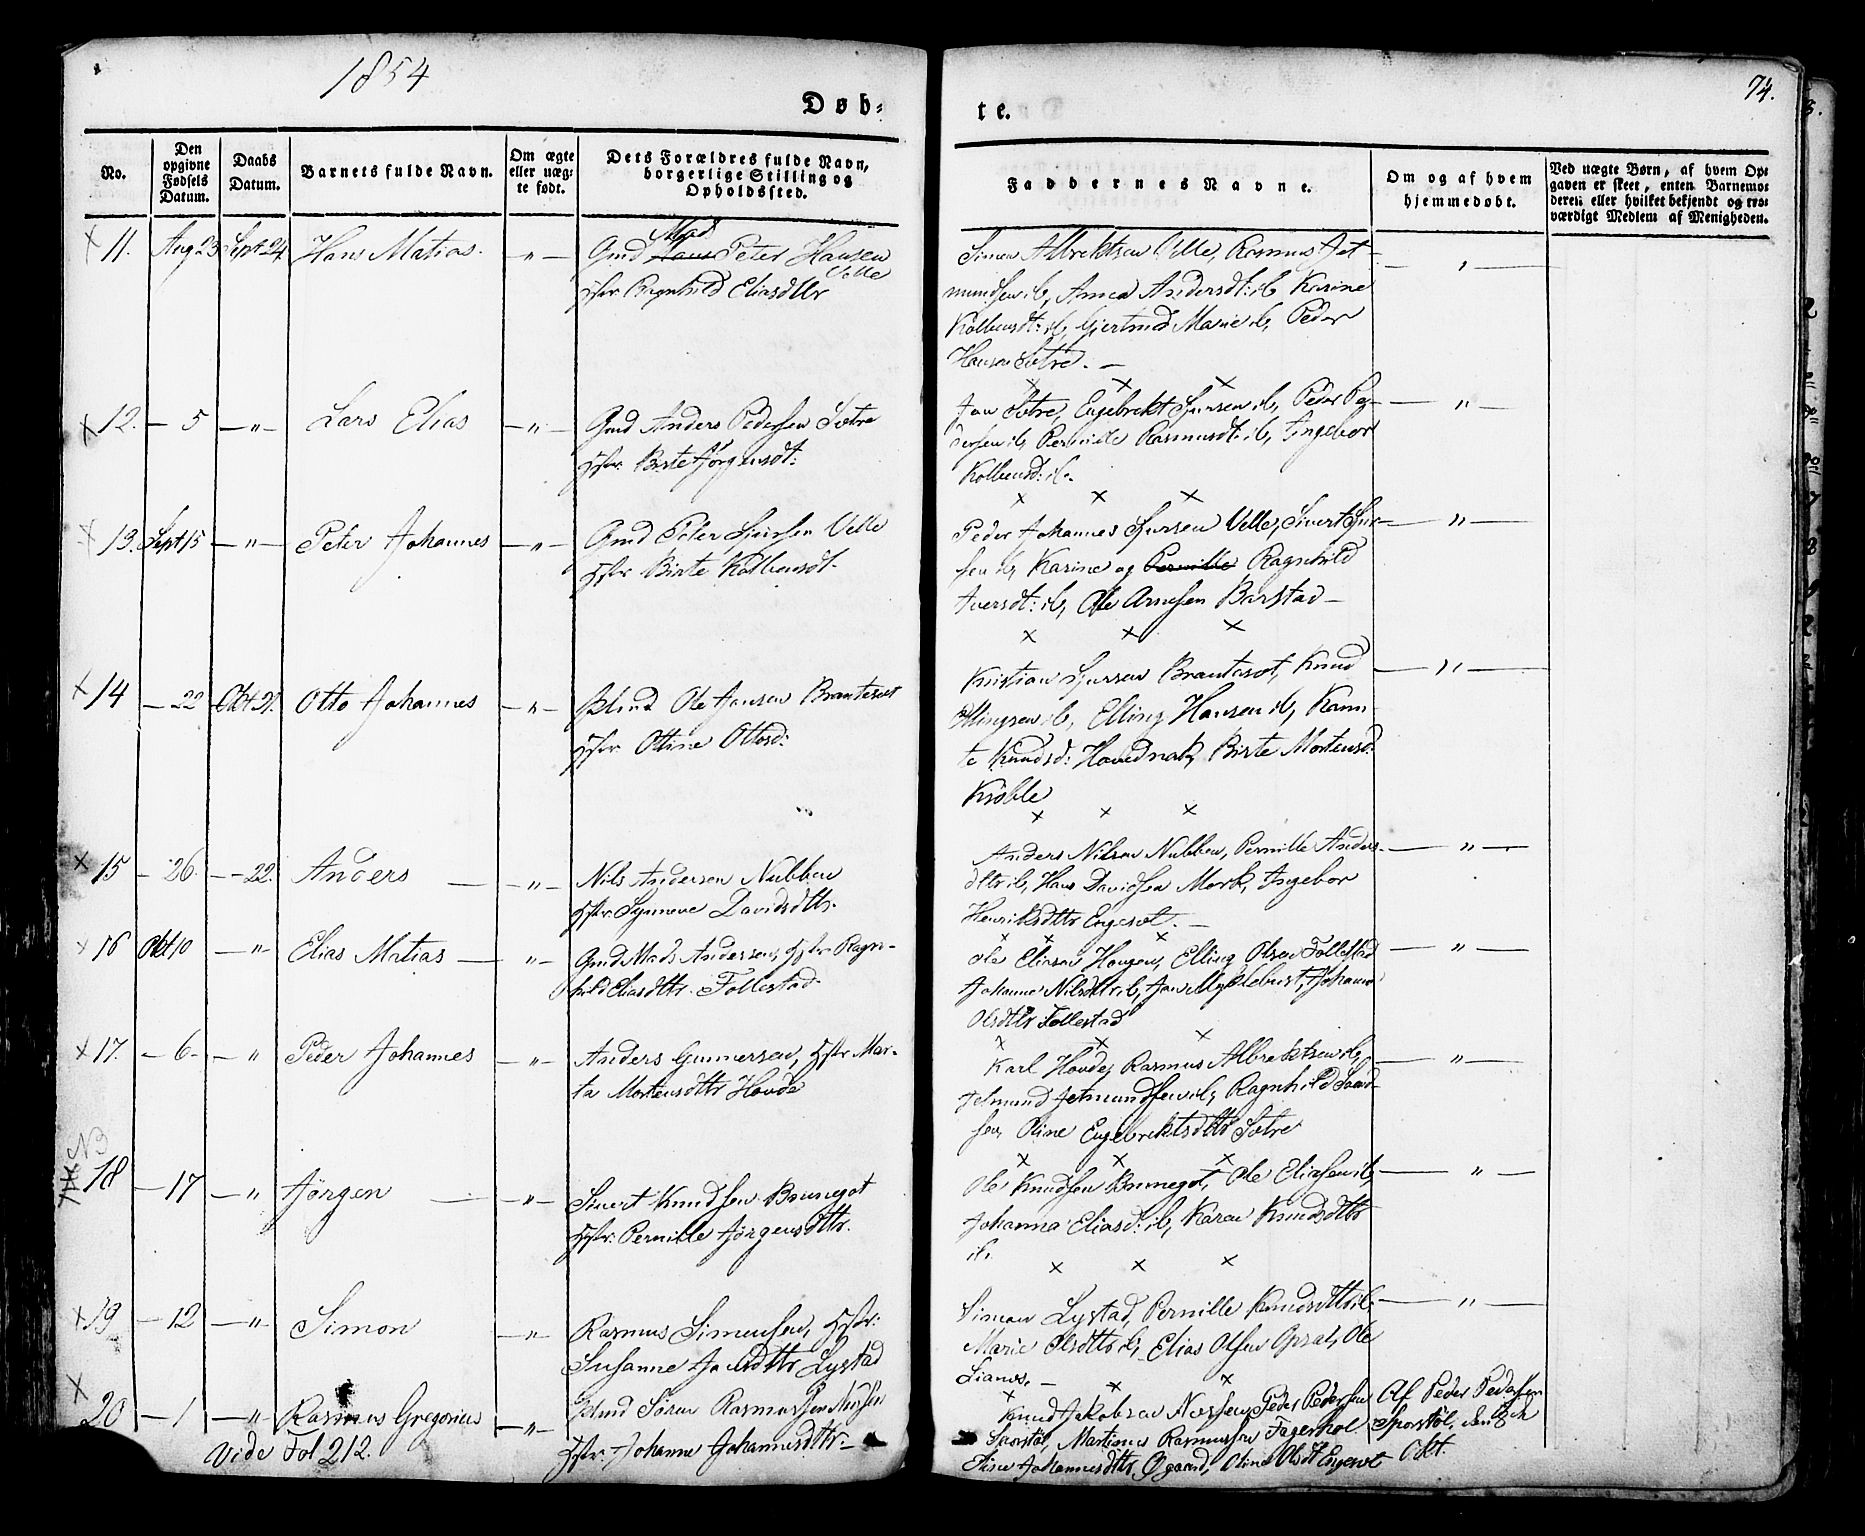 1854
74.
Døb-
te.
No.
Den opgivne Fødsels Datum.
Daabs Datum.
Barnets fulde Navn.
Om ægte eller uæg- te født.
Dets Forældres fulde Navn, borgerlige Stilling og Opholdssted.
Faddernes Navne.
Om og af hvem hjemmedøbt.
Ved uægte Børn, af hvem Op- gaven er skeet, enten Barnemo- deren eller hvilket bekjendt og tro- værdigt Medlem af Menigheden.
× 11. Aug 23 Sept 24 Hans Matias. — " —
Mads
Gmd Hans Peter Hansen
Velle
Hstr Ragnhild Eliasdttr
Simen Albrektsen Velle, Rasmus Jet-
mundsen ib, Anna Andersdt: ib Karine
Kolbensdt: ib, Gjertrud Marie ib, Peder
Hansen Sætre. —
× 12. — 5 — " — Lars Elias — " —
Gmd Anders Pedersen Sætre
Hstr. Birte Jørgensdt:
Jon Sætre, Engebrekt Sjursen ib, Peder Pe-
dersen ib, Pernille Rasmusdt: ib, Ingebor
Kolbensd: ib.
× 13. Sept 15 — " — Peter Johannes — " —
Gmd Peter Sjursen Velle
Hstr Birte Kolbensdt.
Peder Johannes Sjursen Velle, Sivert Sjur-
sen ib, Karine og Pernille Ragnhild
Iversdt: ib, Ole Arnesen Barstad —
× 14 — 22 Okt 21. Otto Johannes — " —
Ole Jensen Brautesæt
Hstr Oline Ottosd:
Kristian Sjursen Brautesæt, Knud
Ellingsen ib, Elling Hansen ib, Karin
te Knudsd: Hovednak, Birte Mortensd:
Krøble
× 15 — 26. — 22. Anders — " —
Nils Andersen Nubben
Hstr. Synneve Davidsdttr.
Anders Nilsen Nubben, Pernille Anders-
dttr ib, Hans Davidsen Mork, Ingebor
Henriksdttr Engeset. —
× 16 Okt 10 — " — Elias Matias — " —
Gmd Mads Andersen, Hstr Ragn-
hild Eliasdttr. Follestad
Ole Eliasen Hougen, Elling Olsen Follestad
Johanne Nilsdttr ib, Jon Myklebust, Johanne
Olsdttr Follestad
× 17. — 6 — — " Peder Johannes — " —
Anders Gunnersen, Hstr Mar-
ta Mortensdttr Hovde
Karl Hovde, Rasmus Albrektsen ib,
Jetmund Jetmundsen ib, Ragnhild
Oline Engebrektsdttr Sætre
NB
18 — 17 — " Jørgen — " —
Sivert Knudsen Brunegot
Hstr. Pernille Jørgensdttr.
Ole Knudsen Brunegot, Ole Eliasen ib,
Johanna Eliasd: ib, Karen Knudsdttr
ib.
× 19 — 12 — " — Simon — " —
Rasmus Simensen, Hstr:
Susanne Joelsdttr Lystad
Simon Lystad, Pernille Knudsdttr ib,
Marie Olsdttr ib, Elias Olsen Opsal, Ole
Lianes. —
× 20 — 1 — " Rasmus Gregorius — " —
Søren Rasmussen
Hstr. Johanne Johannesdttr —
Knud Jakobsen Peder Pedersen
Sporstøl, Martinus Rasmussen Fagerhol
Elise Johannesdttr Øgaard, Oline Olsdt Engeset
Af Peder Pedersen
Sporstøl, den 8de
Okt.
Vide Fol 212.